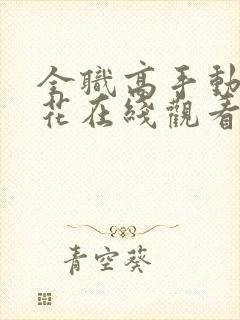 全職高手動
花在綫觀看
青空葵